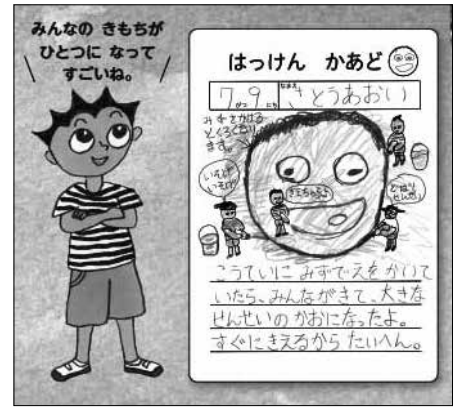 みんなの きもちが
ひとつに なって
すごいね。
はっけん かあど
7がつ9にち なまえ さとうあおい
みずをかける
とくろくなり
ます。
いそげ
いそげ
きえちゃうよ
となり
せんせい
こうていに みずでえを かいて
いたら、みんながきて、大きな
せんせいの かおになったよ。
すぐに きえるから たいへん。